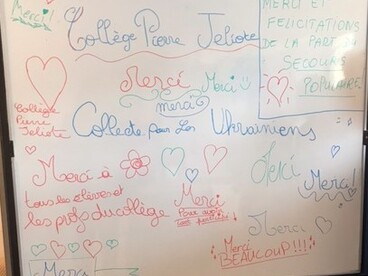 Merci!
Collège Pierre Jeliote
MERCI ET
FELICITATIONS
DE LA PART DU
SECOURS
POPULAIRE.
Merci
Merci
merci
Collège
Pierre
Jeliote
Collecte pour les Ukrainiens
Merci à
tous les élèves et
les profs du collège
Merci
Merci!
Merci
Pour
Merci
Merci
BEAUCOUP!!!
Merci